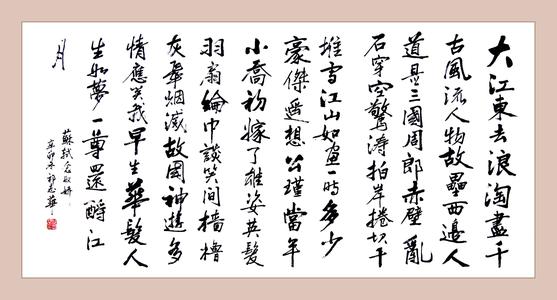 大江東去浪淘盡千
古風流人物故壘西邊人
道是三國周郎赤壁亂
石穿空驚濤拍岸捲起千
堆雪江山如畫一時多少
豪傑遙想公瑾當年
小喬初嫁了雄姿英髮
羽扇綸巾談笑間檣櫓
灰飛烟滅故國神遊多
情應笑我早生華髮人
生如夢一尊還酹江
月
蘇軾念奴嬌
辛卯年